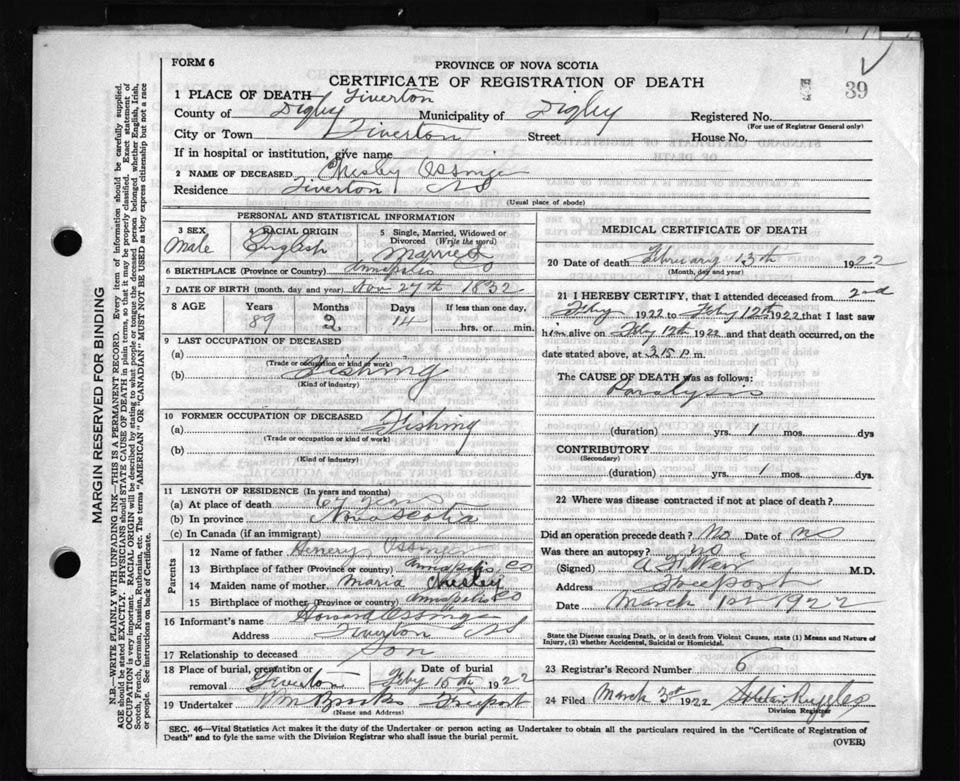 FORM 6
PROVINCE OF NOVA SCOTIA
CERTIFICATE OF REGISTRATION OF DEATH
39
1 PLACE OF DEATH Tiverton
County of Digby Municipality of Digby Registered No.
(For use of Registrar General only)
City or Town Tiverton Street House No.
If in hospital or institution, give name
2 NAME OF DECEASED Chesley Ossinger
Residence Tiverton NS
(Usual place of abode)
PERSONAL AND STATISTICAL INFORMATION
3 SEX Male
4 RACIAL ORIGIN English
5 Single, Married, Widowed or Divorced (Write the word) Married
6 BIRTHPLACE (Province or Country) Annapolis Co
7 DATE OF BIRTH (month, day and year) Nov 27th 1832
8 AGE Years Months Days If less than one day,
89 2 14 hrs. or min.
9 LAST OCCUPATION OF DECEASED
(a)
(Trade or occupation or kind of work)
(b) Fishing
(Kind of industry)
10 FORMER OCCUPATION OF DECEASED
(a) Fishing
(Trade or occupation or kind of work)
(b)
(Kind of industry)
11 LENGTH OF RESIDENCE (In years and months)
(a) At place of death
(b) In province Nova Scotia
(c) In Canada (if an immigrant)
Parents
12 Name of father Henery Ossinger
13 Birthplace of father (Province or country) Annapolis Co
14 Maiden name of mother Maria Chesley
15 Birthplace of mother (Province or country) Annapolis Co
16 Informant's name Howard Ossinger
Address Tiverton NS
17 Relationship to deceased Son
18 Place of burial, cremation or removal Tiverton Date of burial Feby 15th 1922
19 Undertaker Wm Brooks Freeport
(Name and Address)
MEDICAL CERTIFICATE OF DEATH
20 Date of death February 13th 1922
(Month, day and year)
21 I HEREBY CERTIFY, that I attended deceased from 2nd
Feby 1922 to Feby 12th 1922, that I last saw
him alive on Feby 12th 1922 and that death occurred, on the
date stated above, at 3.15 p.m.
The CAUSE OF DEATH was as follows:
Paralysis
(duration) yrs. 1 mos. dys
CONTRIBUTORY
(Secondary)
(duration) yrs. 1 mos. dys.
22 Where was disease contracted if not at place of death?
Did an operation precede death? No Date of no
Was there an autopsy? no
(Signed) Weir M.D.
Address Freeport
Date March 1st 1922
State the Disease causing Death, or in death from Violent Causes, state (1) Means and Nature of
Injury, (2) whether Accidental, Suicidal or Homicidal.
23 Registrar's Record Number 6
24 Filed March 3rd 1922 Ruggles
Division Registrar
SEC. 46—Vital Statistics Act makes it the duty of the Undertaker or person acting as Undertaker to obtain all the particulars required in the "Certificate of Registration of
Death" and to fyle the same with the Division Registrar who shall issue the burial permit.
(OVER)
MARGIN RESERVED FOR BINDING
N.B.—WRITE PLAINLY WITH UNFADING INK—THIS IS A PERMANENT RECORD. Every item of information should be carefully supplied.
AGE should be stated EXACTLY. PHYSICIANS should STATE CAUSE OF DEATH in plain terms, so that it may be properly classified. Exact statement of
OCCUPATION is very important. RACIAL ORIGIN will be described by stating to what people or tongue the deceased person belonged whether English, Irish,
Scotch, French, German, Russian, Ruthenian, etc. The terms "AMERICAN" OR "CANADIAN" MUST NOT BE USED as they express citizenship but not a race
or people. See instructions on back of Certificate.